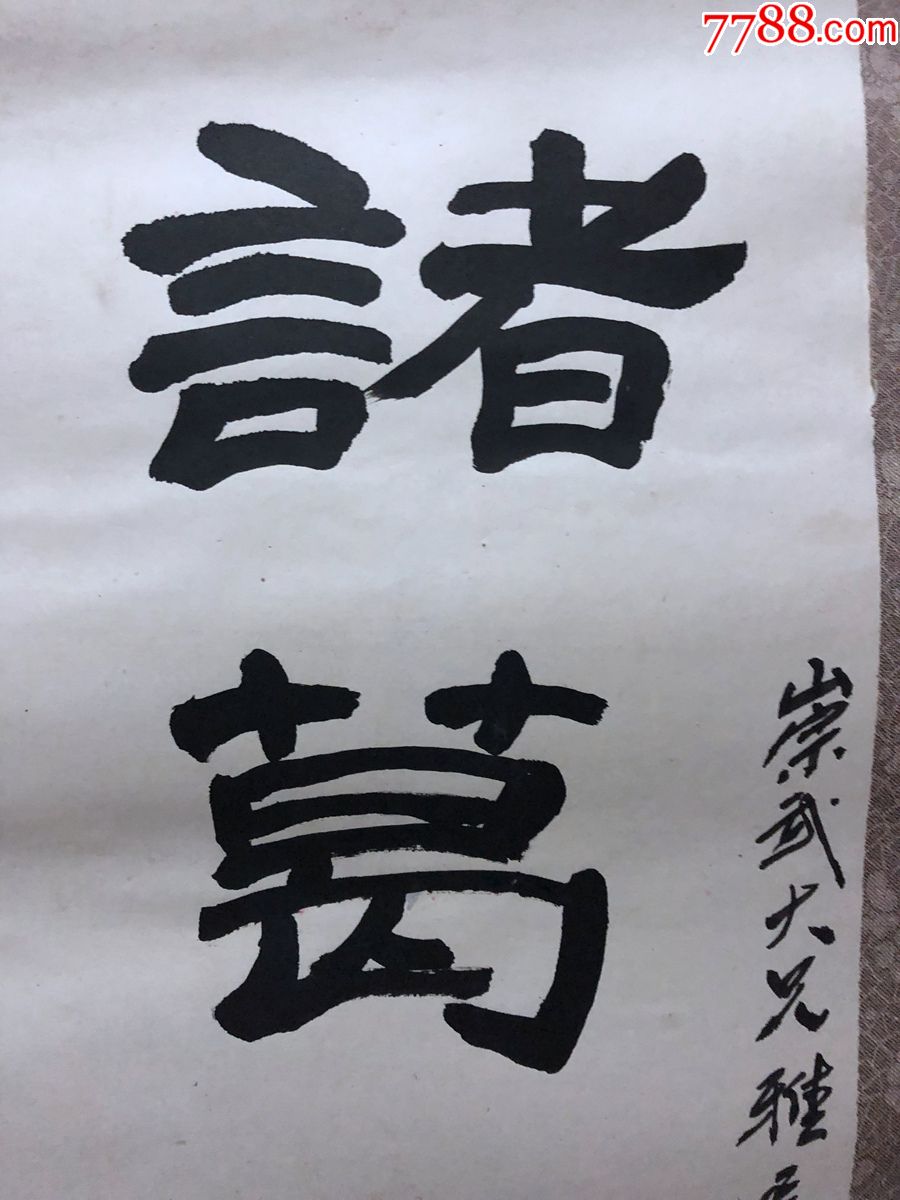 7788.com
諸葛
崇武大兄雅